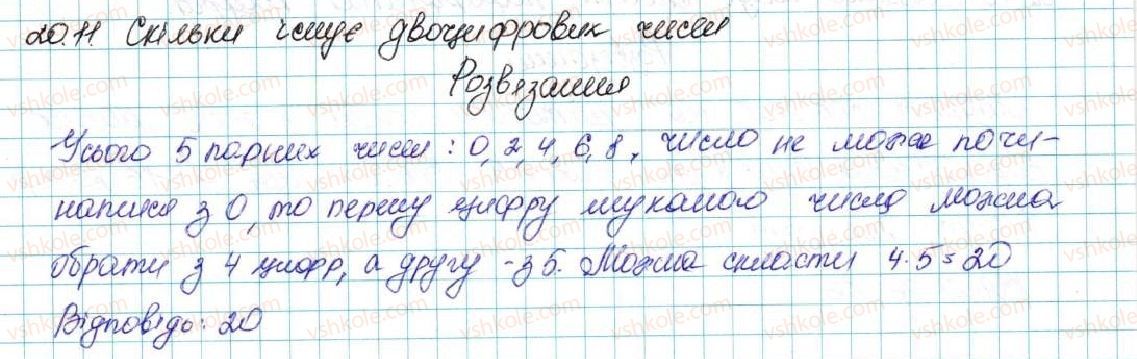 20.11. Скільки існує двоцифрових чисел
Розвязання
Усього 5 парних чисел : 0, 2, 4, 6, 8, число не може почи-
натися з 0, то першу цифру шуканого числа можна
обрати з 4 цифр, а другу - з 5. Можна скласти 4·5=20
Відповідь: 20